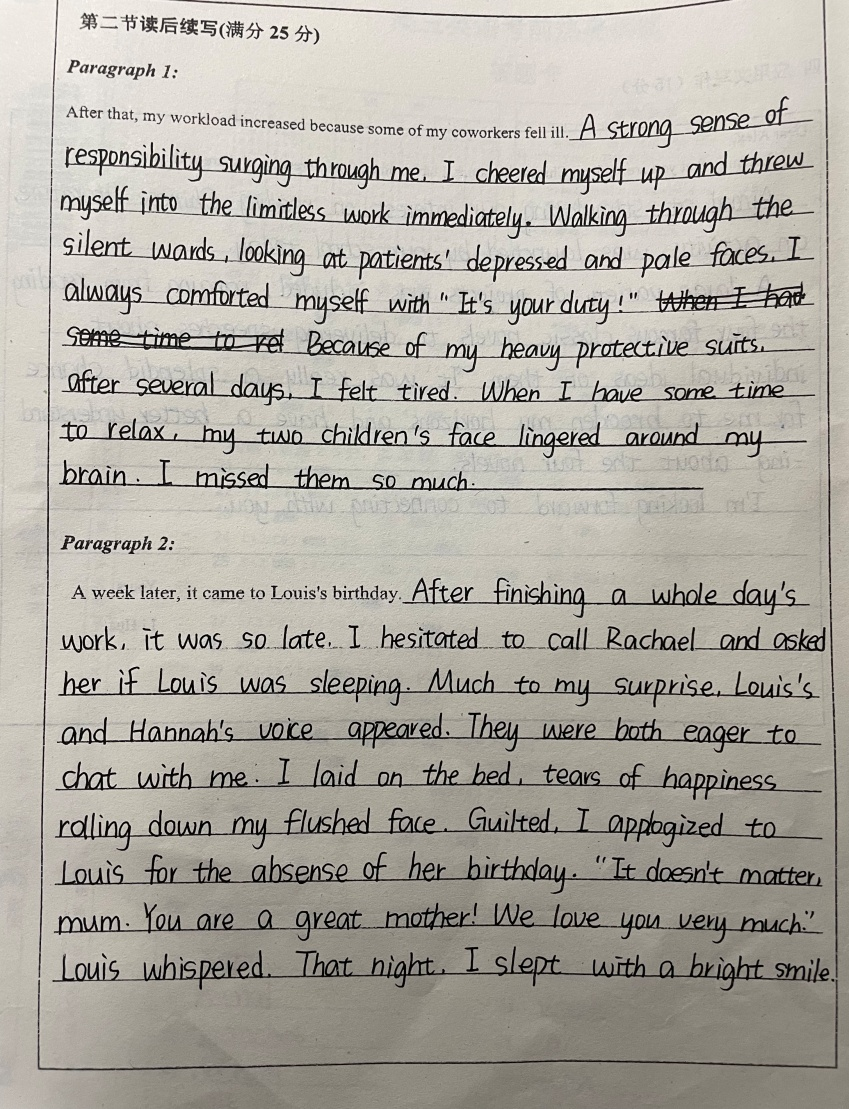 第二节读后续写(满分 25 分)
Paragraph 1:
After that, my workload increased because some of my coworkers fell ill. A strong sense of
responsibility surging through me, I cheered myself up and threw
myself into the limitless work immediately. Walking through the
silent wards, looking at patients' depressed and pale faces, I
always comforted myself with "It's your duty!" When I had
some time to rel Because of my heavy protective suits,
after several days, I felt tired. When I have some time
to relax, my two children's face lingered around my
brain. I missed them so much.
Paragraph 2:
A week later, it came to Louis's birthday. After finishing a whole day's
work, it was so late. I hesitated to call Rachael and asked
her if Louis was sleeping. Much to my surprise, Louis's
and Hannah's voice appeared. They were both eager to
chat with me. I laid on the bed, tears of happiness
rolling down my flushed face. Guilted, I applogized to
Louis for the absense of her birthday. "It doesn't matter,
mum. You are a great mother! We love you very much."
Louis whispered. That night, I slept with a bright smile.